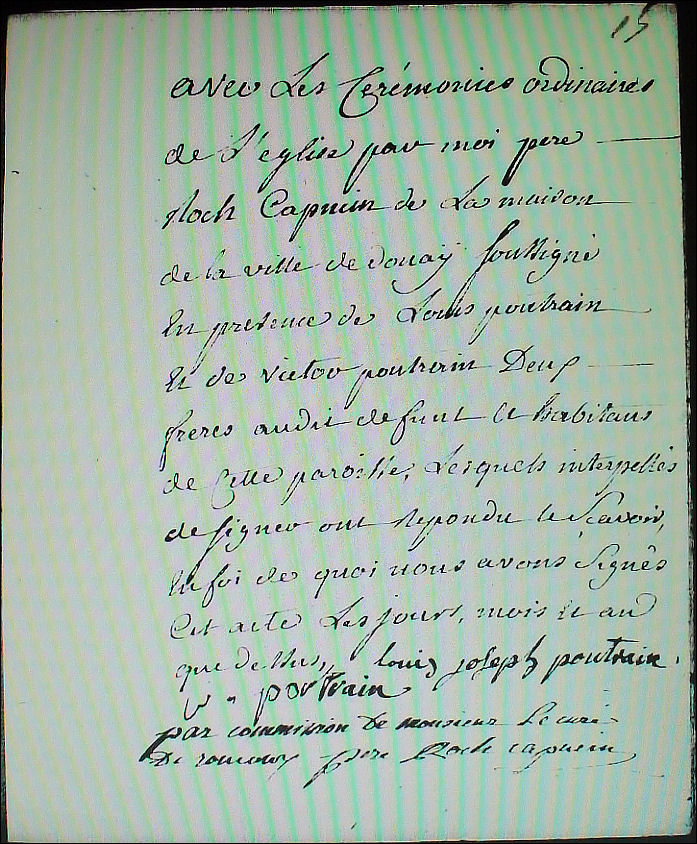 15
avec Les Cerémonies ordinaires
de L'eglise par moi pere
Roch Capucin de La maison
de la ville de douaÿ soussigné
En presence de Louis poutrain
Et de victor poutrain Deux
freres audit defunt et habitans
de Cette paroisse, Lesquels interpellés
de signer ont Repondu le Scavoir,
En foi de quoi nous avons Signés
Cet acte Les jours, mois et an
que dessus,, louis joseph poutrain.
poutrain
par commission De monsieur Le curé
De pere Roch capucin